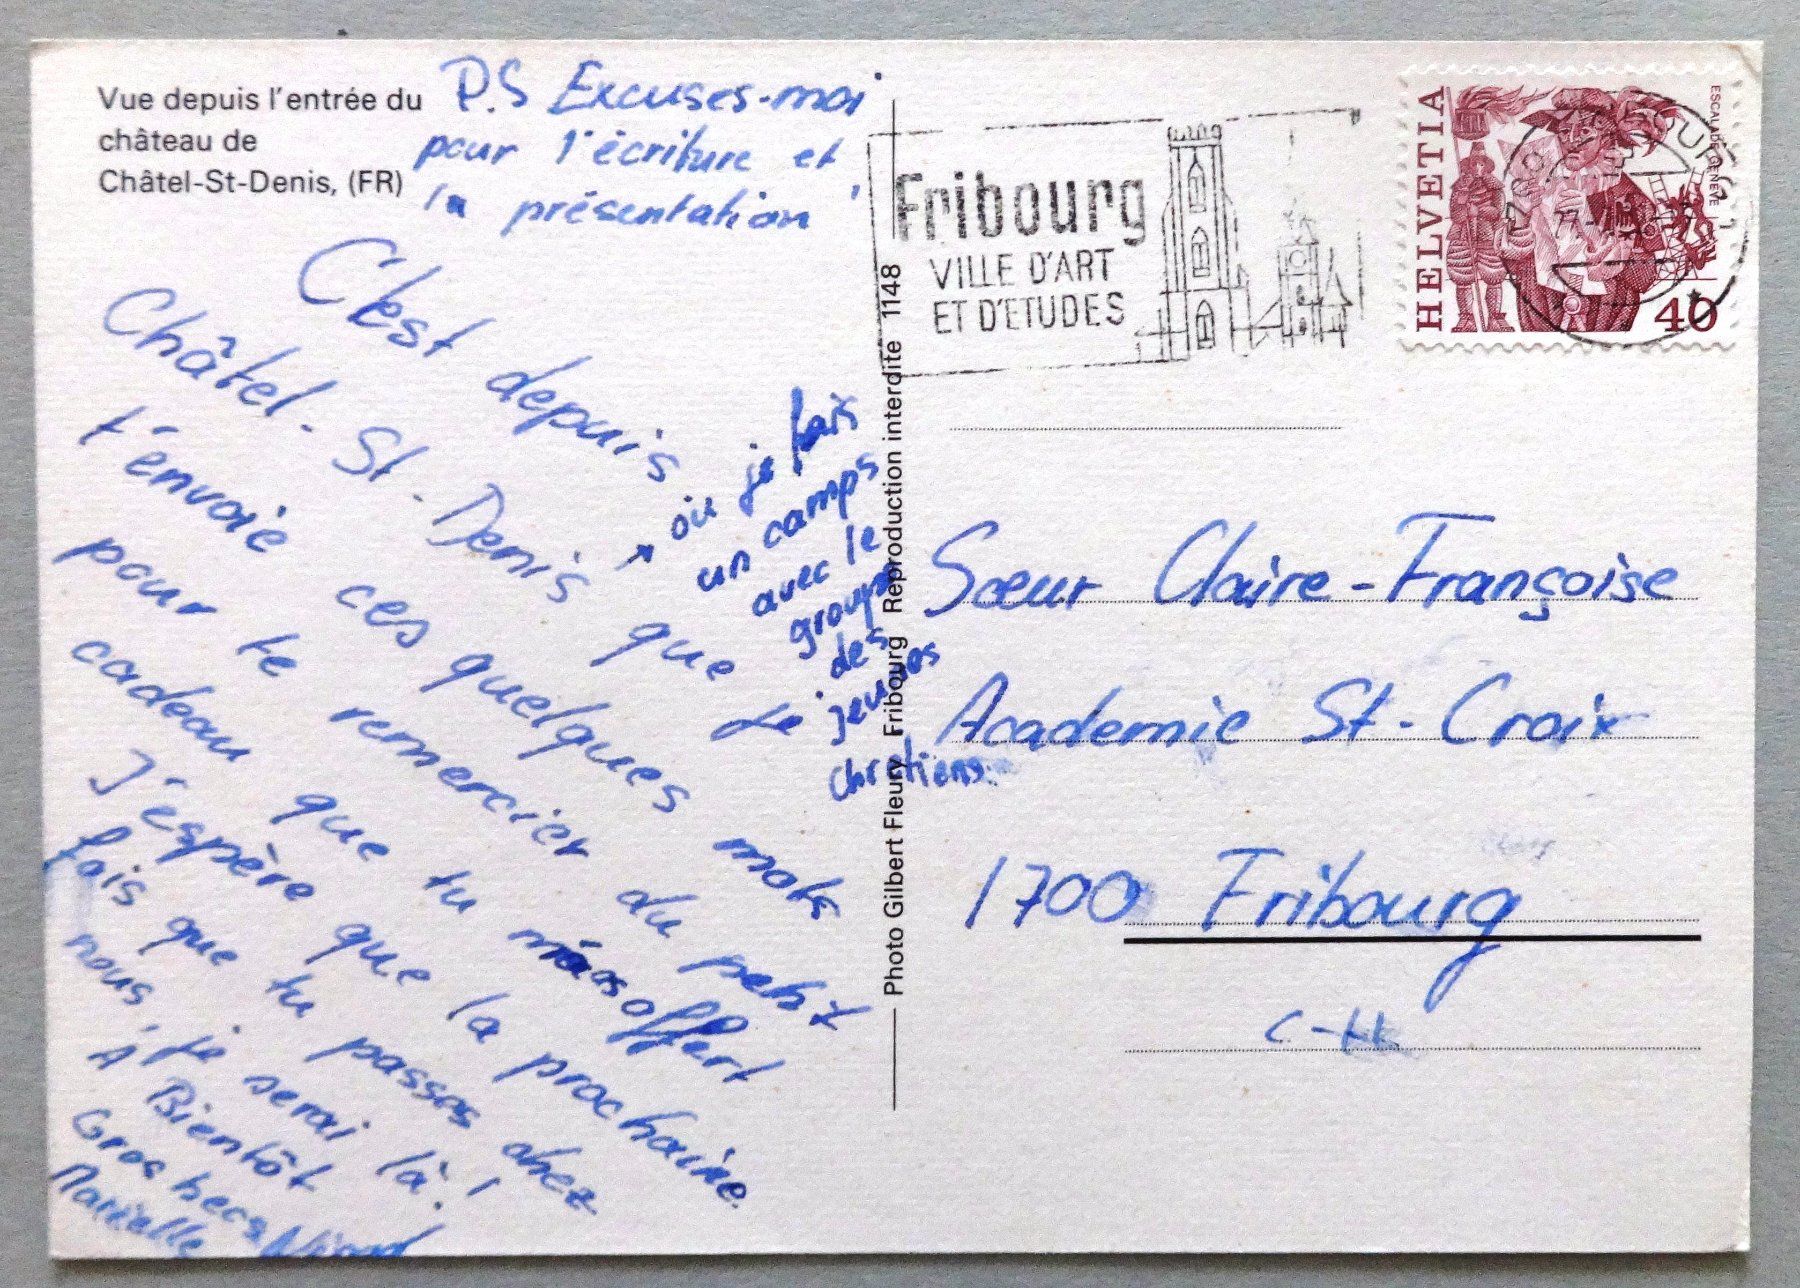 Vue depuis l'entrée du
château de
Châtel-St-Denis, (FR)
P.S Excuses-moi
pour l'écriture et
la présentation
C'est depuis
Châtel-St-Denis que je
où je fais
un camps
avec le
groupe
des
jeunes
chrétiens.
t'envoie ces quelques mots
pour te remercier du petit
cadeau que tu m'as offert
J'éspère que la prochaine
fois que tu passes chez
nous, je serai là!
A Bientôt
Gros becs
Marielle
Photo Gilbert Fleury Fribourg Reproduction interdite 1148
Fribourg
VILLE D'ART
ET D'ETUDES
HELVETIA
ESCALADE GENÈVE
40
Sœur Claire-Françoise
Academie St-Croix
1700 Fribourg
C-H